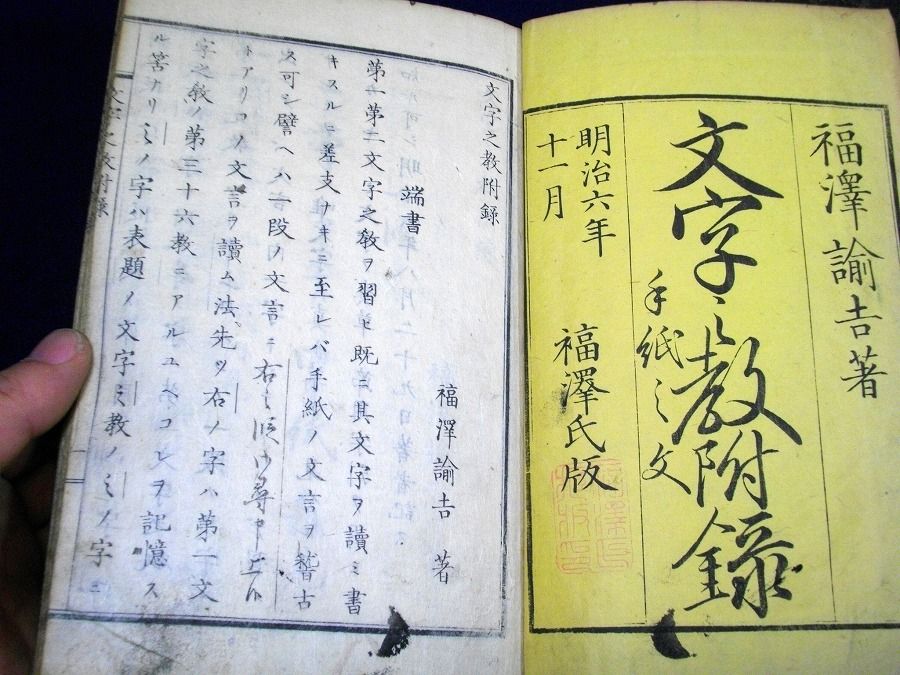 福澤諭吉著
文字之教附録
手紙之文
明治六年
十一月
福澤氏版
文字之教附録
端書
福澤諭吉 著
第一第二文字之教ヲ習ヒ既ニ其文字ヲ讀ミ書
キスルニ差支ナキニ至レバ手紙ノ文言ヲ稽古
ス可シ譬ヘハ二段ノ文言ニ右之御尋申上候
トアリコノ文言ヲ讀ム法先ツ右ノ字ハ第一文
字之教ノ第三十六教ニアルユヘコレヲ記憶ス
ル筈ナリ之ノ字ハ表題ノ文字之教ノ之ノ字ニ
文字之教附録